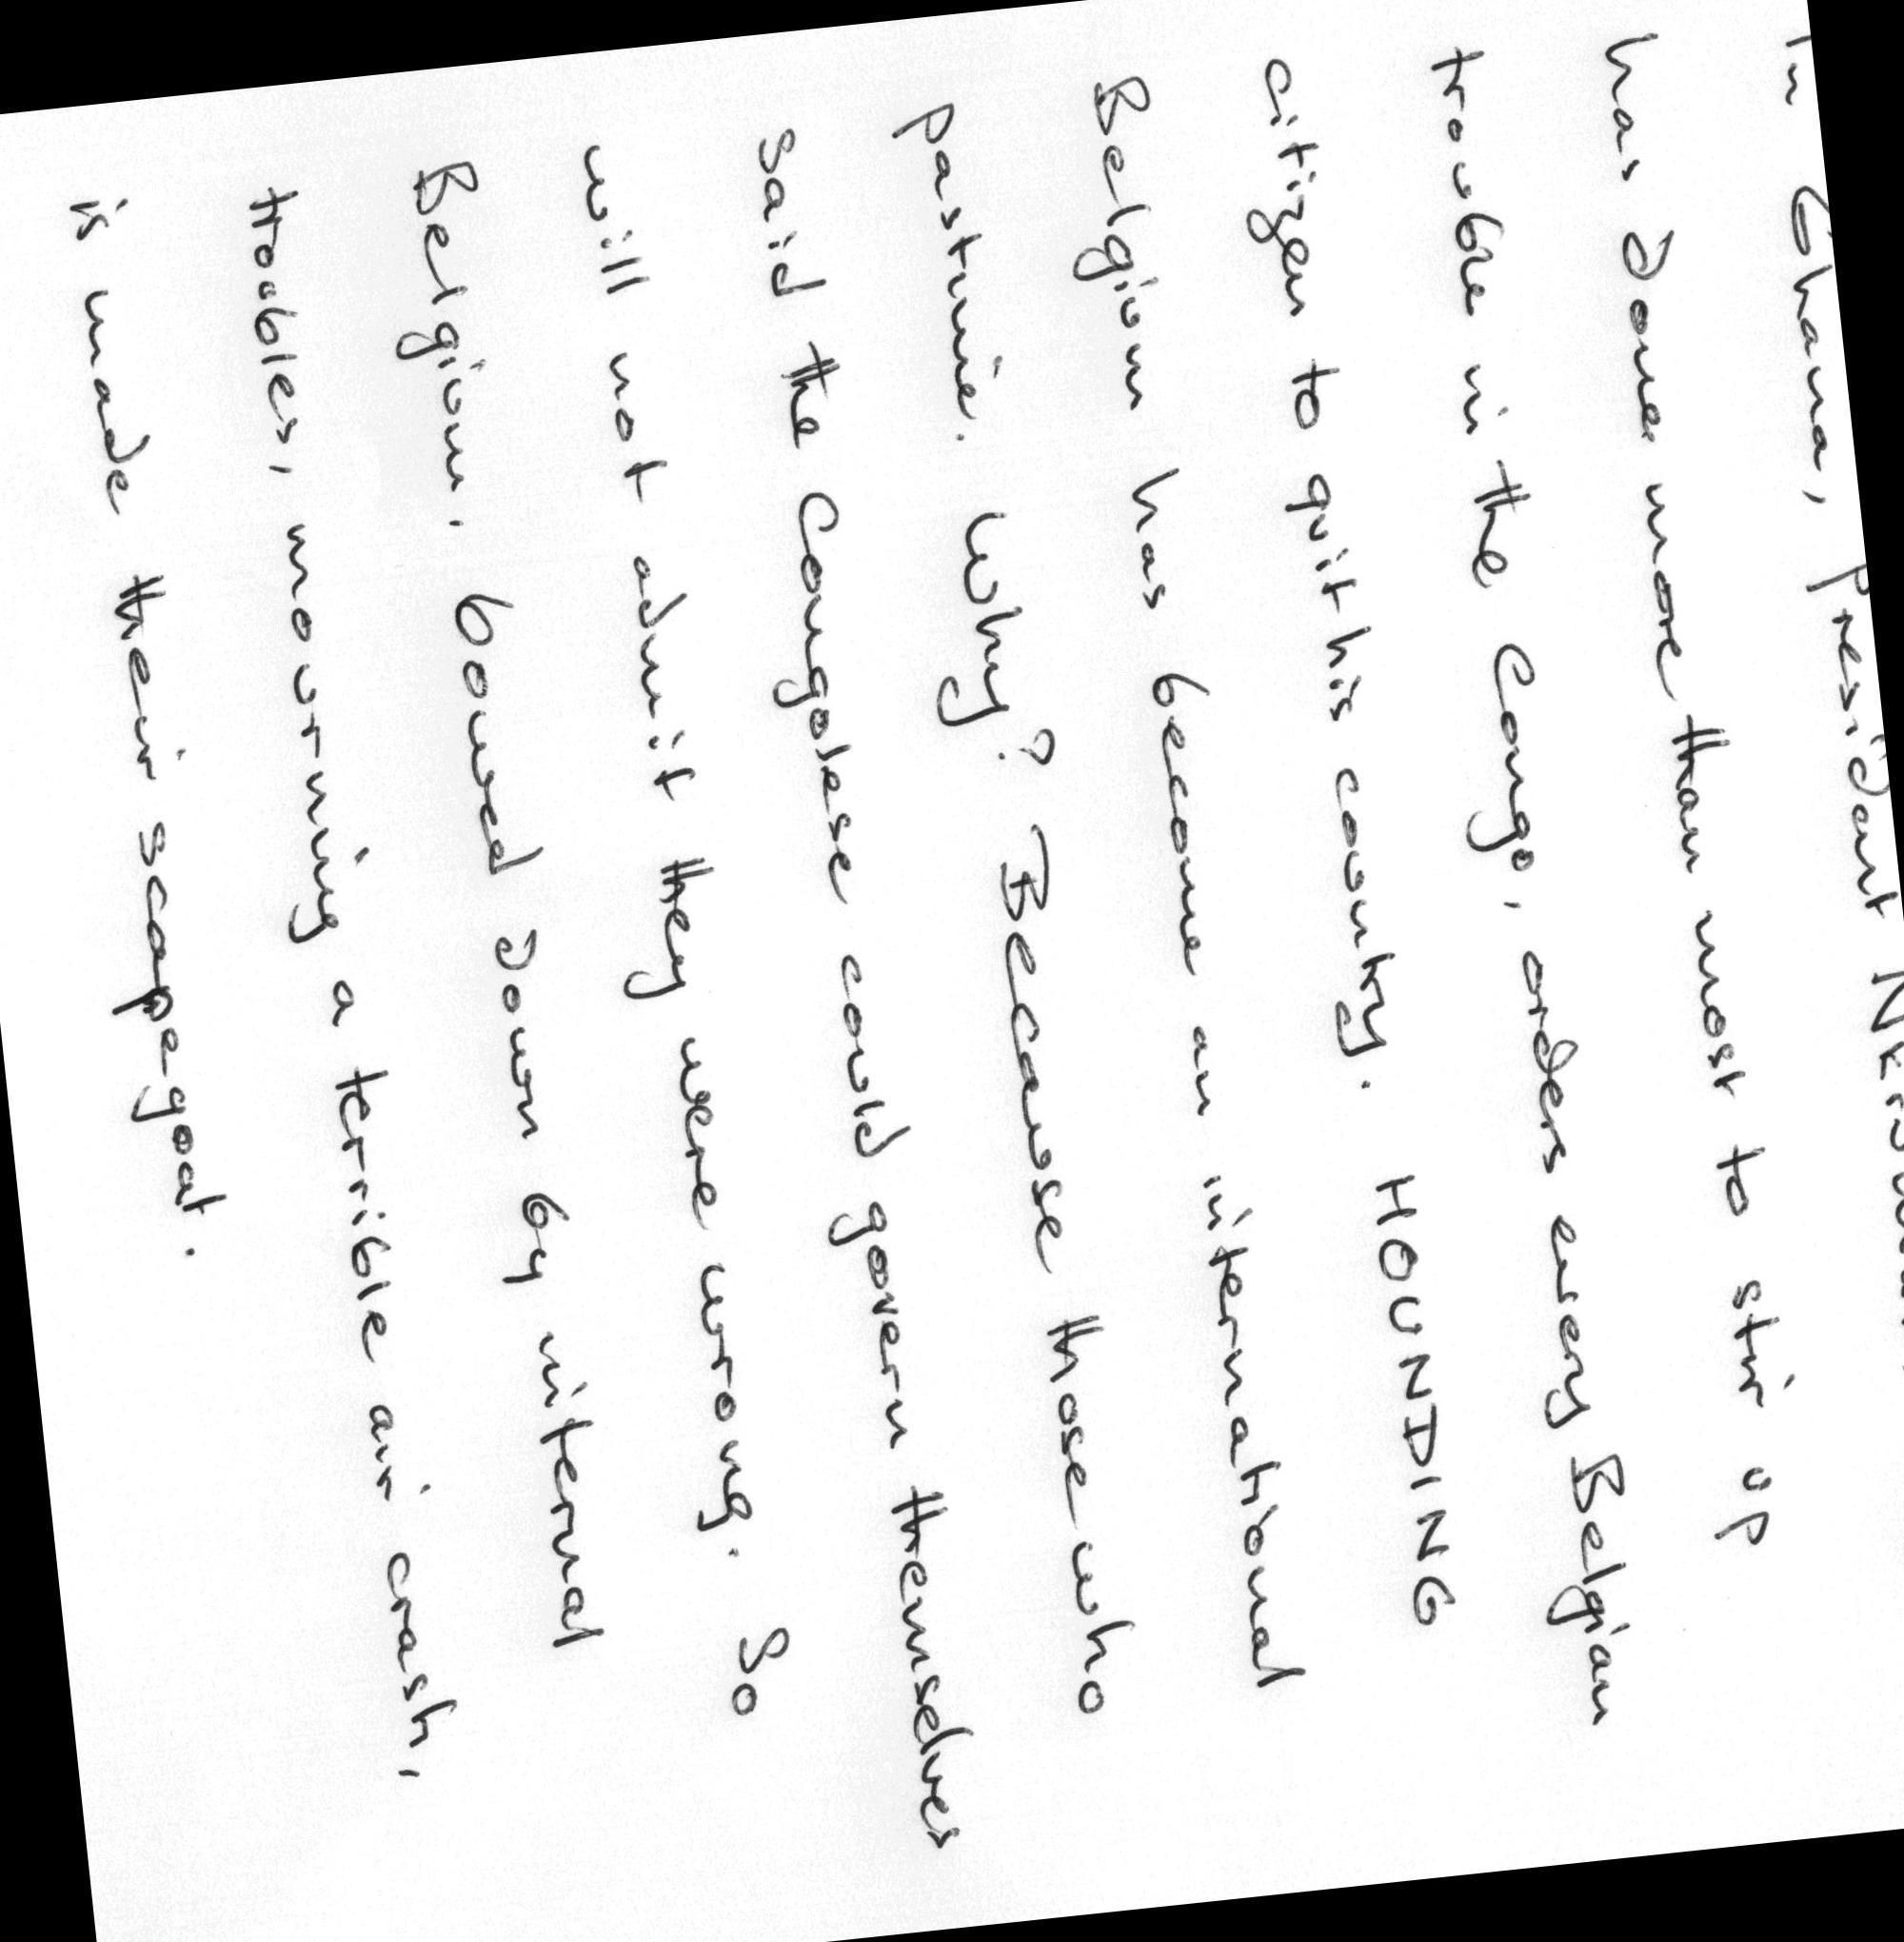 In Ghana, President
has done more than most to stir up
trouble in the Congo, orders every Belgian
citizen to quit his country. HOUNDING
Belgium has become an international
pastime. Why? Because those who
said the Congolese could govern themselves
will not admit they were wrong. So
Belgium, bowed down by internal
troubles, mourning a terrible air crash,
is made their scape-goat.